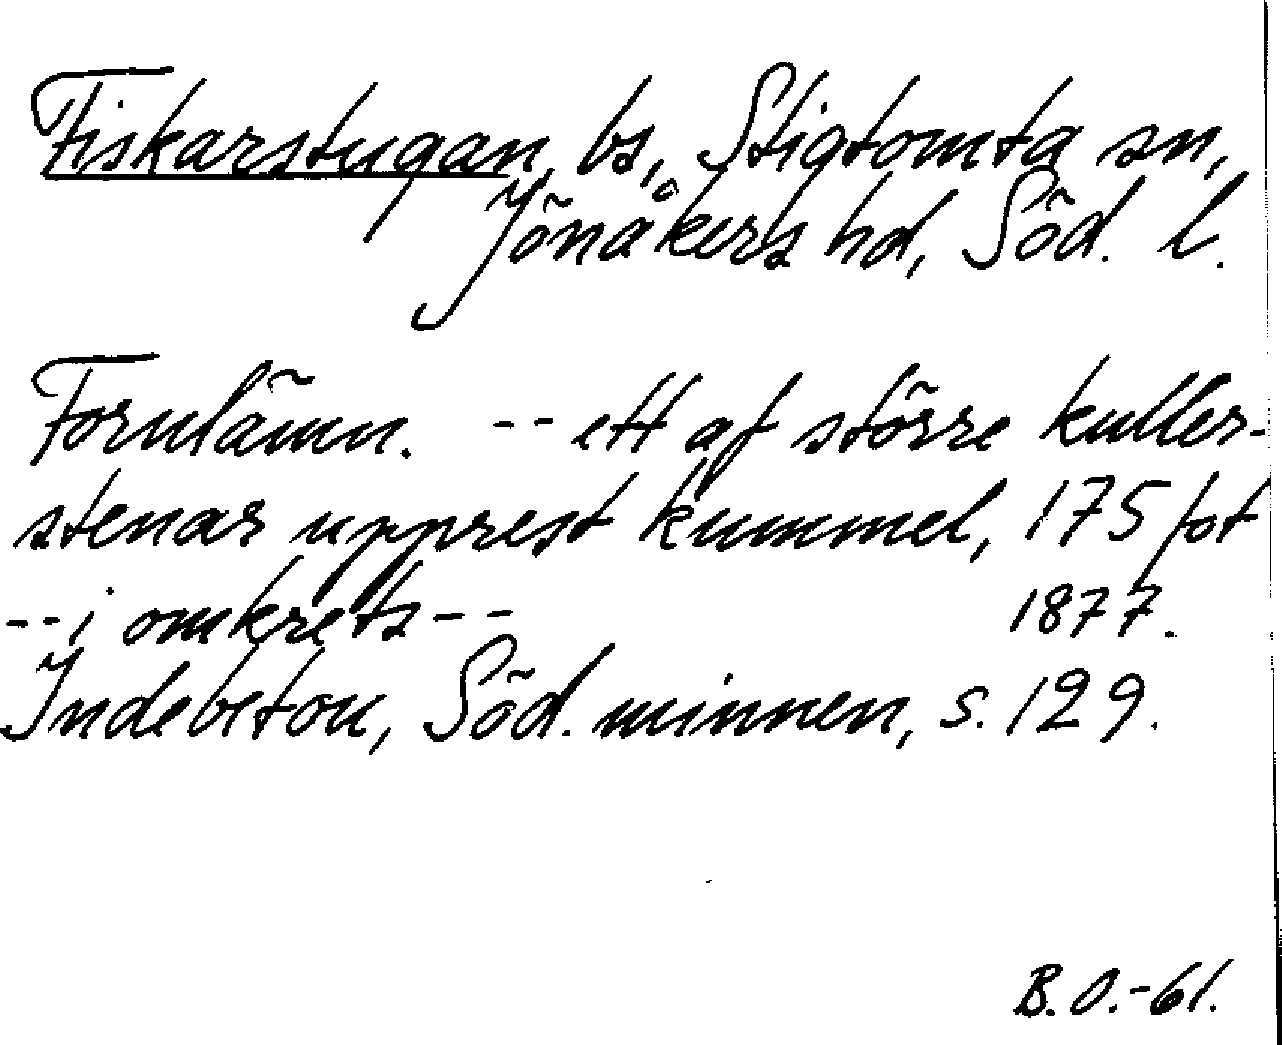 Fiskarstugan, bs, Stigtomta sn,
Jönåkers hd, Söd. l.
Fornlämn. -- ett af större kuller-
stenar upprest kummel, 175 fot
-- i omkrets -- 1877.
Indebetou, Söd. minnen, s. 129.
B.O.-61.